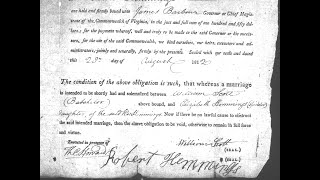 and firmly bound unto James Barbour Governor or Chief Magis-
trate of the Commonwealth of Virginia, in the just and full sum of one hundred and fifty
dollars, for the payment whereof, well and truly to be made to the said Governor or the succes-
sors, for the use of the said Commonwealth, we bind ourselves, our heirs, executors and ad-
ministrators, jointly and severally, firmly by the presents. Sealed with our seals and dated
this 29th day of August
The condition of the above obligation is such, that whereas a marriage
is intended to be shortly had and solemnized between William Scott
(Batchelor) above bound, and Elizabeth Hemmings
daughter of the Hemmings. Now if there be no lawful cause to obstruct
the said intended marriage, then the above obligation to be void, otherwise to remain in full force
and virtue.
Executed in presence of
William Scott
Robert Hemmings
(Seal.)
(Seal.)